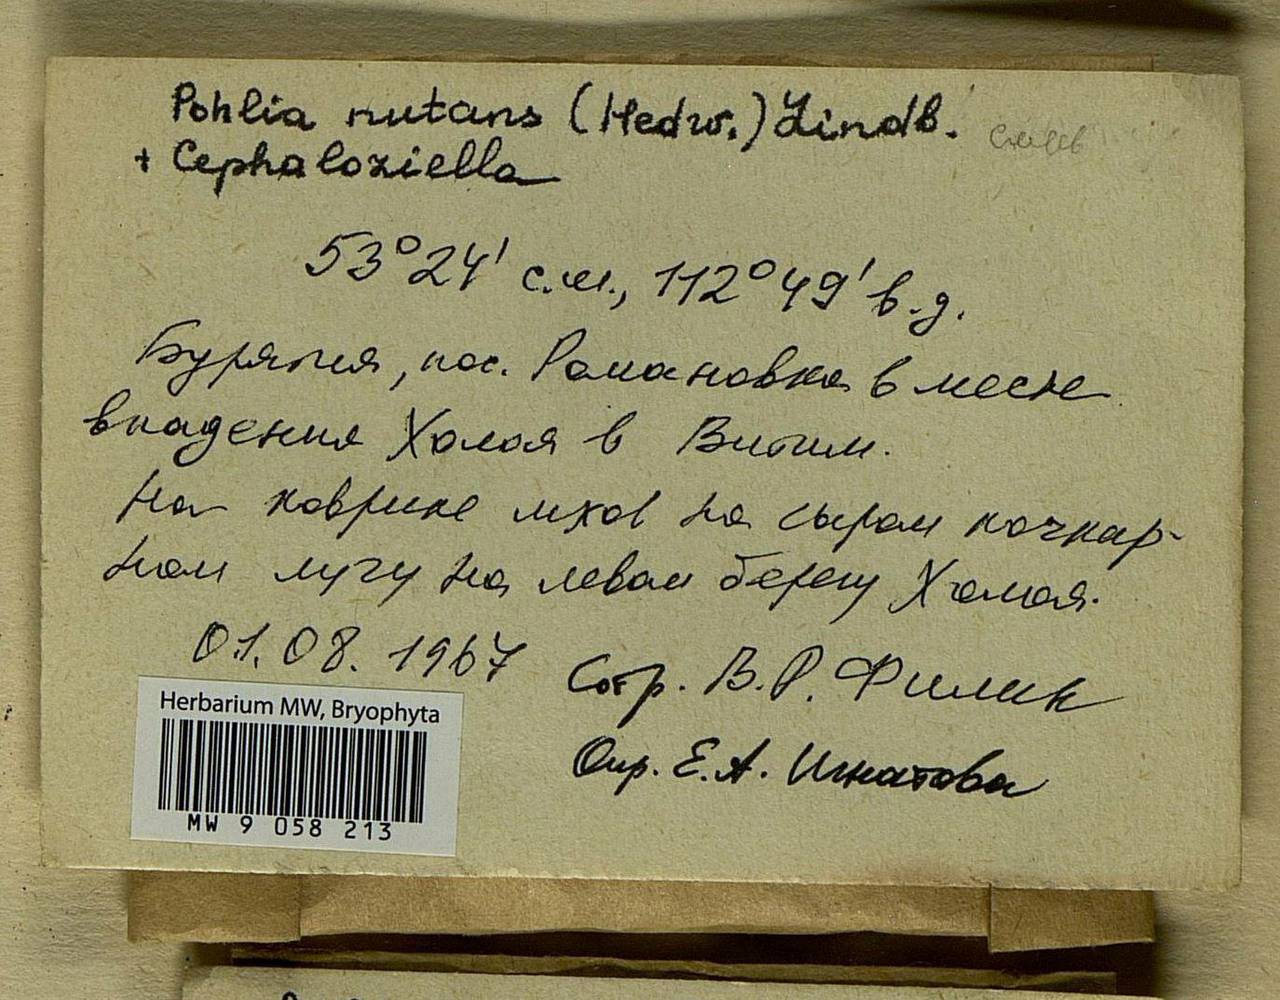 Pohlia nutans (Hedw.) Lindb.
+ Cephaloziella
53°24' с.ш., 112°49' в.д.
Бурятия, пос. Романовка в месте
впадения Холоя в Витим.
На коврике мхов на сыром кочкар-
ном лугу на левом берегу Холоя.
01.08.1967 Собр. В.Р. Филин
Опр. Е.А. Игнатова
Herbarium MW, Bryophyta
MW 9 058 213